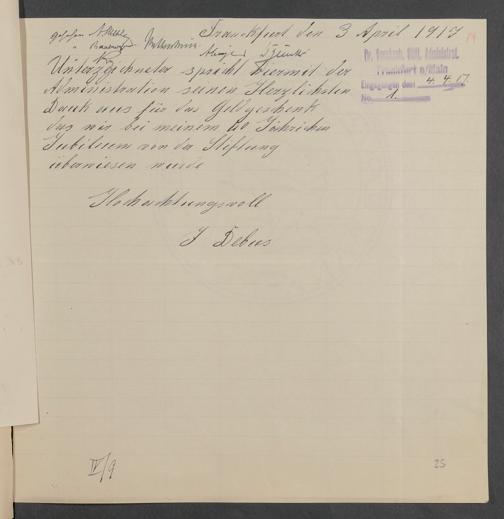 Franckfurt den 3 April 1917
gelesen
Dr. Senckenb. Stift. Administrat.
Frankfurt a/Main
Eingegangen den 4. 4. 17.
No. 1.
Unterzeichneter spricht hiermit der
Administration seinen Herzlichsten
Dank aus für das Geldgeschenk
das mir bei meinem 40 Jährichen
Jubileum von der Stiftung
überwiesen wurde
Hochachtungsvoll
J Debus
IV/9
25